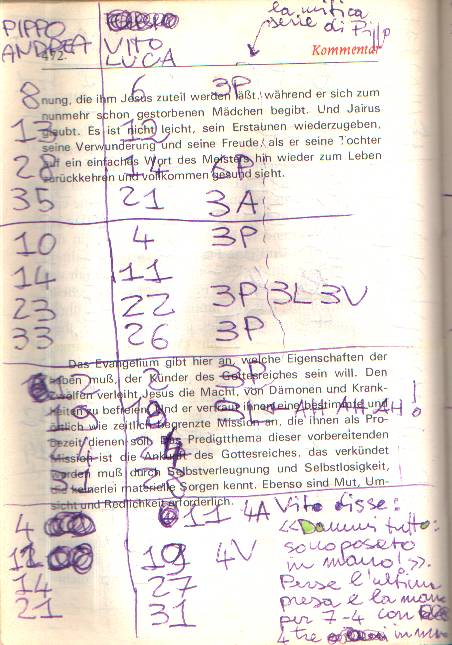 PIPPO
ANDREA
VITO
LUCA
la mitica
serie di Pippo
492
Kommentar
8 6 3P
nung, die ihm Jesus zuteil werden läßt, während er sich zum
nunmehr schon gestorbenen Mädchen begibt. Und Jairus
13 12
glaubt. Es ist nicht leicht, sein Erstaunen wiederzugeben,
seine Verwunderung und seine Freude, als er seine Tochter
28 14 6P
auf ein einfaches Wort des Meisters hin wieder zum Leben
zurückkehren und vollkommen gesund sieht.
35 21 3A
10 4 3P
14 11
23 22 3P 3L 3V
33 26 3P
Das Evangelium gibt hier an, welche Eigenschaften der
haben muß, der Künder des Gottesreiches sein will. Den
3P
Zwölfen verleiht Jesus die Macht, von Dämonen und Krank-
heiten zu befreien. Und er vertraut ihnen eine bestimmte und
AH AH AH!
örtlich wie zeitlich begrenzte Mission an, die ihnen als Pro-
bezeit dienen soll. Das Predigtthema dieser vorbereitenden
Mission ist die Ankunft des Gottesreiches, das verkündet
werden muß durch Selbstverleugnung und Selbstlosigkeit,
die keinerlei materielle Sorgen kennt. Ebenso sind Mut, Um-
sicht und Redlichkeit erforderlich.
4 11 4A Vito disse:
«Dammi tutto:
12 19 4V sono posato
in mano!».
14 27 Perse l'ultima
presa e la mano
21 31 per 7-4 con
4 tre in mano